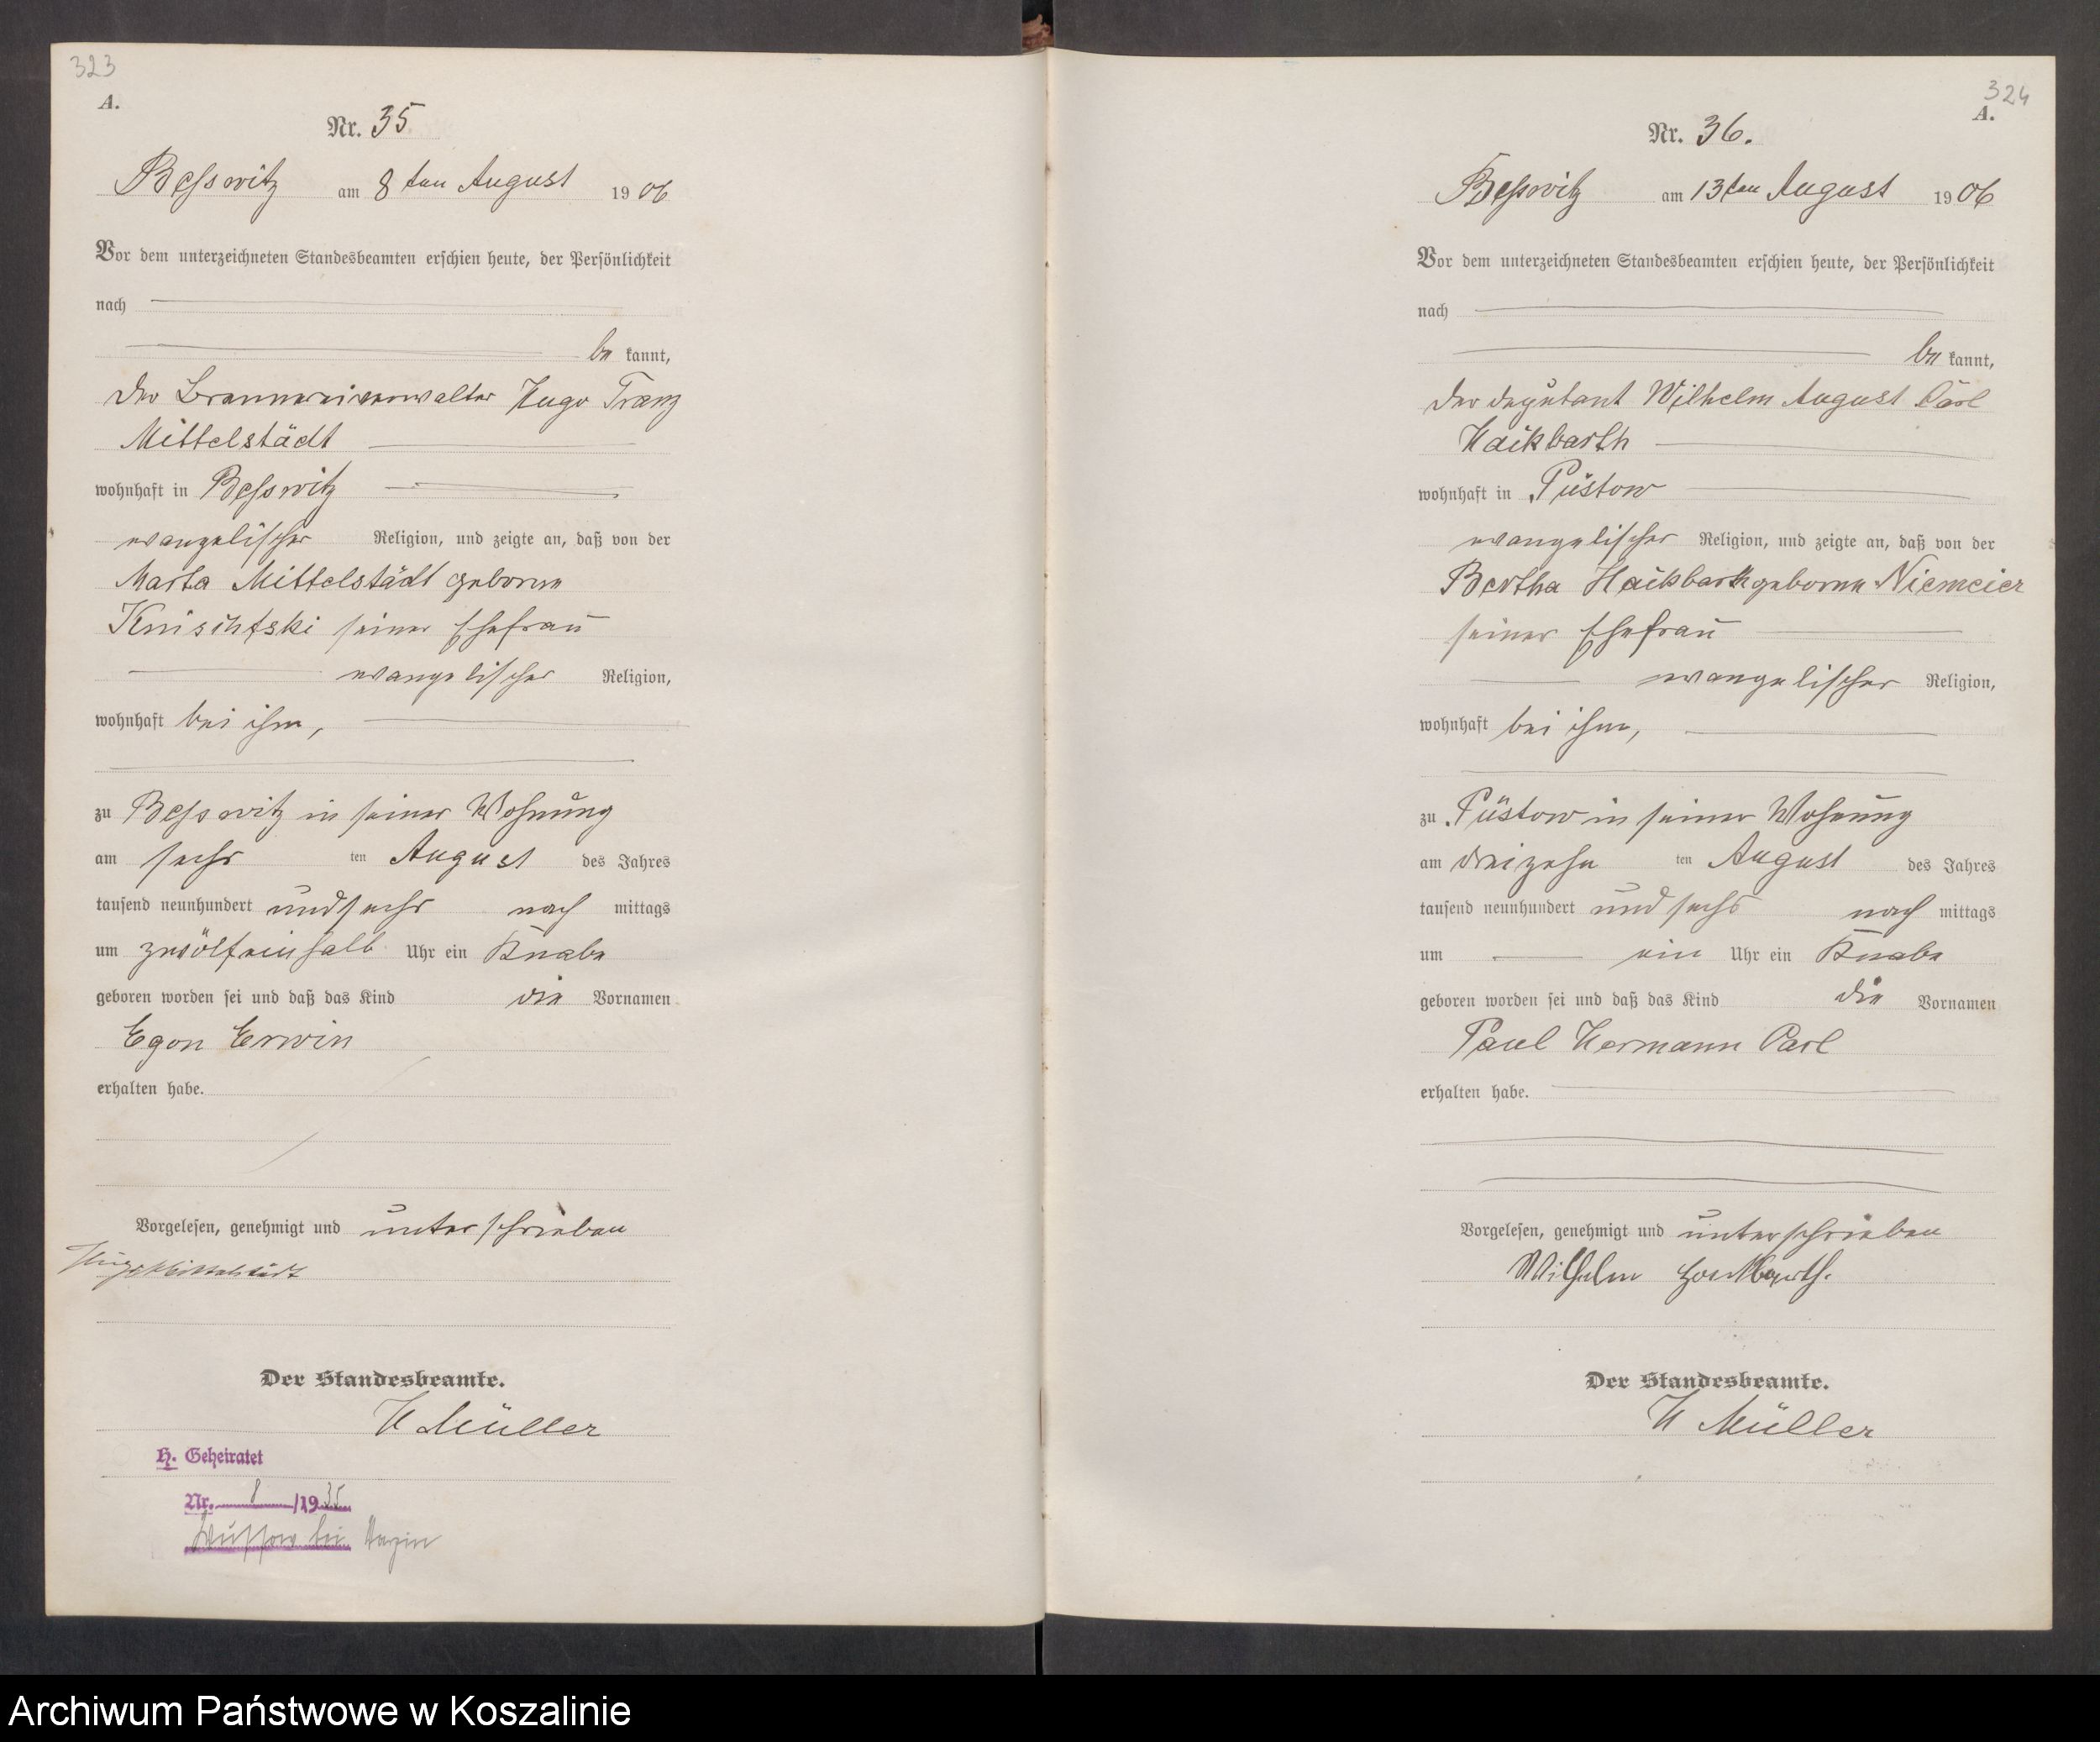 323
A.
Nr. 35
Besswitz am 8ten August 1906
Vor dem unterzeichneten Standesbeamten erschien heute, der Persönlichkeit
nach
be kannt,
der Brennereiverwalter Hugo Franz
Mittelstädt
wohnhaft in Besswitz
evangelischer Religion, und zeigte an, daß von der
Marta Mittelstädt geborne
seiner Ehefrau
evangelischer Religion,
wohnhaft bei ihm,
zu Besswitz in seiner Wohnung
am sechs ten August des Jahres
tausend neunhundert und sechs nach mittags
um zwölfeinhalb Uhr ein Knabe
geboren worden sei und daß das Kind die Vornamen
Egon Erwin
erhalten habe.
Vorgelesen, genehmigt und unterschrieben
Hugo Mittelstädt
Der Standesbeamte.
H Müller
H. Geheiratet
Nr. 8 /1935
Wussow bei Varzin
324
A.
Nr. 36.
Besswitz am 13ten August 1906
Vor dem unterzeichneten Standesbeamten erschien heute, der Persönlichkeit
nach
be kannt,
der Deputant Wilhelm August Carl
Hackbarth
wohnhaft in Püstow
evangelischer Religion, und zeigte an, daß von der
Bertha Hackbarth geborne Niemeier
seiner Ehefrau
evangelischer Religion,
wohnhaft bei ihm,
zu Püstow in seiner Wohnung
am dreizehn ten August des Jahres
tausend neunhundert und sechs nach mittags
um ein Uhr ein Knabe
geboren worden sei und daß das Kind die Vornamen
Paul Hermann Carl
erhalten habe.
Vorgelesen, genehmigt und unterschrieben
Wilhelm Hackbarth.
Der Standesbeamte.
H Müller
Archiwum Państwowe w Koszalinie